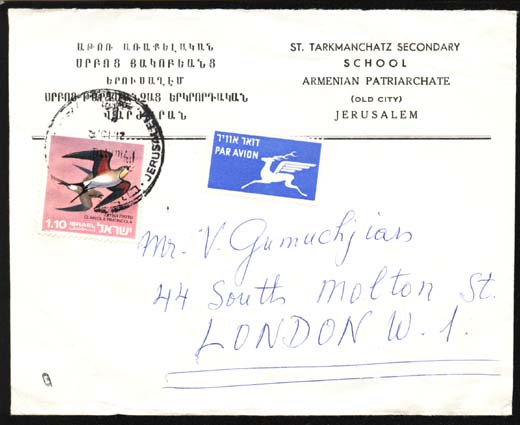 ԱԹՈՌ ԱՌԱՔԵԼԱԿԱՆ
ՍՐԲՈՑ ՅԱԿՈԲԵԱՆՑ
ԵՐՈՒՍԱՂԷՄ
ՍՐԲՈՑ ԹԱՐԳՄԱՆՉԱՑ ԵՐԿՐՈՐԴԱԿԱՆ
ՎԱՐԺԱՐԱՆ
ST. TARKMANCHATZ SECONDARY
SCHOOL
ARMENIAN PATRIARCHATE
(OLD CITY)
JERUSALEM
JERUSALEM
דואר אוויר
PAR AVION
GLAREOLA PRATINCOLA
1.10 ישראל
Mr. V. Gumuchjian
44 South Molton St.
LONDON W. 1.